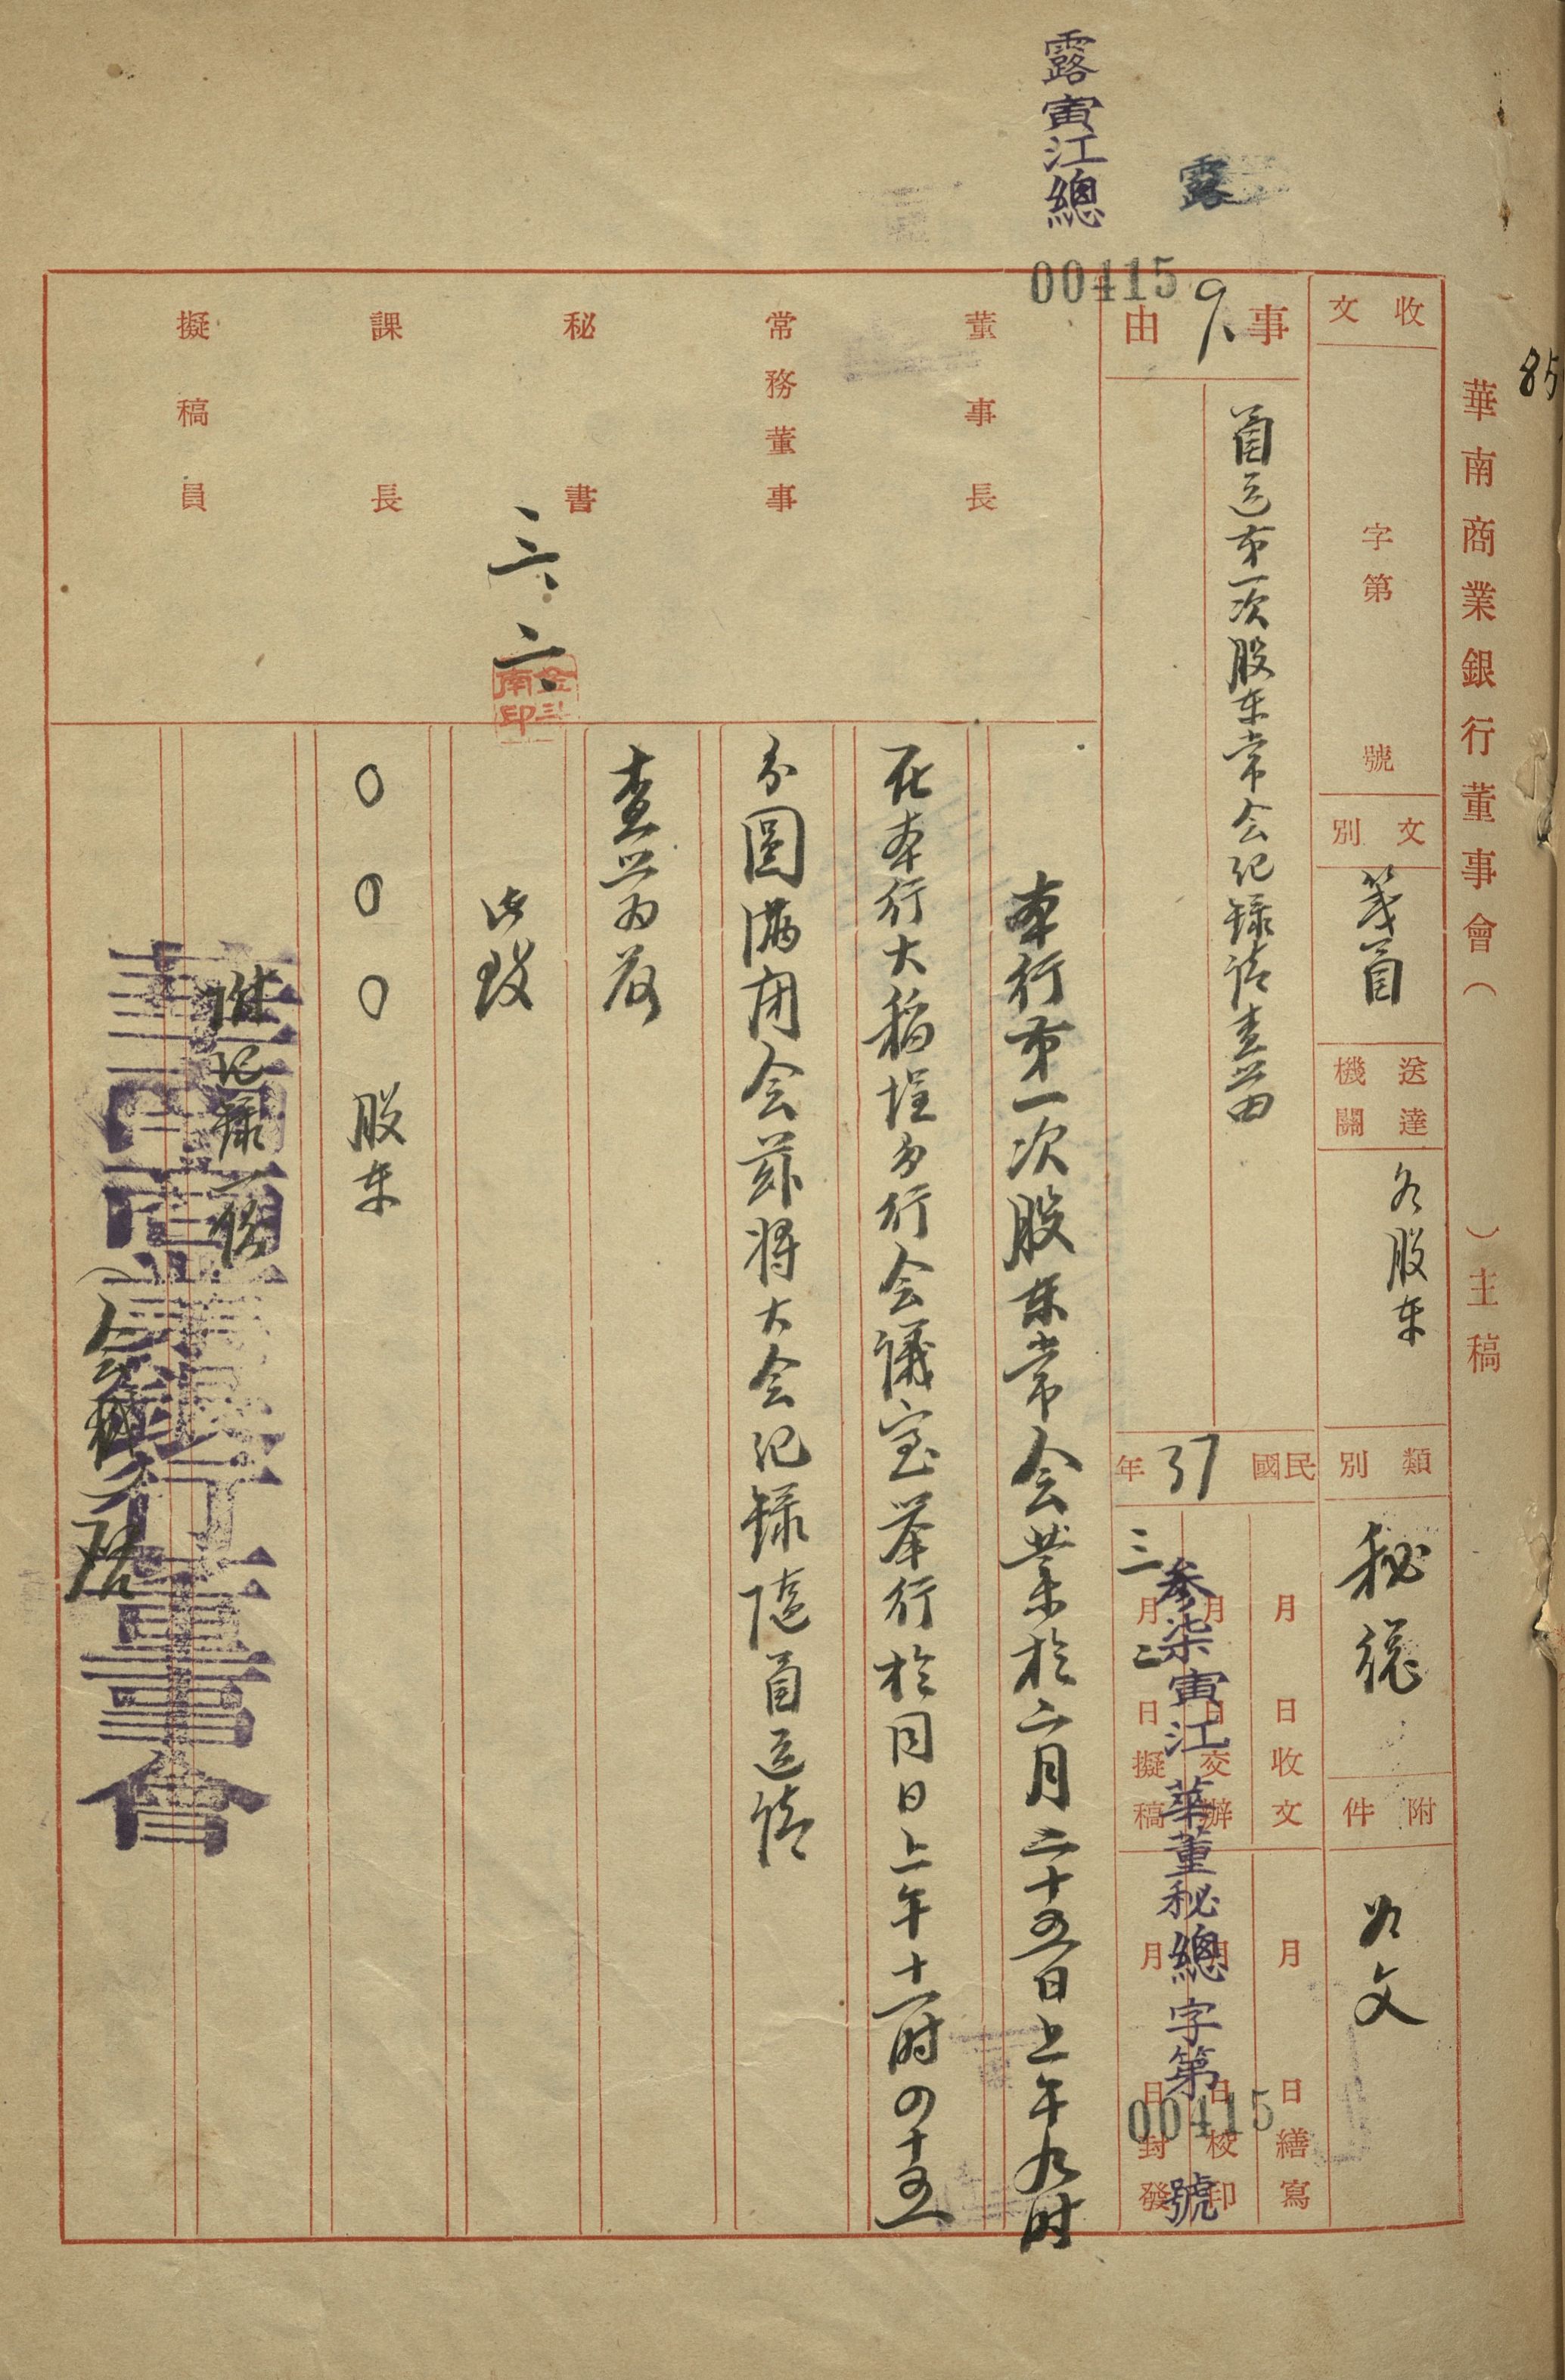 露寅江總
露
00415
85
華南商業銀行董事會（　　）主稿
收文
字第　號
文別
箋函
送達機關
各股東
類別
秘總
附件
如文
事由
函送第一次股東常会紀録請查照由
民國37年
月　日收文
月　日交辦
三月二日擬稿
月　日繕寫
月　日校印
月　日封發
参柒寅江華董秘總字第00415號
董事長
常務董事
秘書
課長
擬稿員
三、二、
本行第一次股東常会業於二月二十五日上午九时
在本行大稻埕分行会議室举行於同日上午十一时四十五
分圓满闭会茲将大会记録隨函送請
查照為荷
此致
○○○股東
附记録一份
華南商業銀行董事會
（全銜）啓